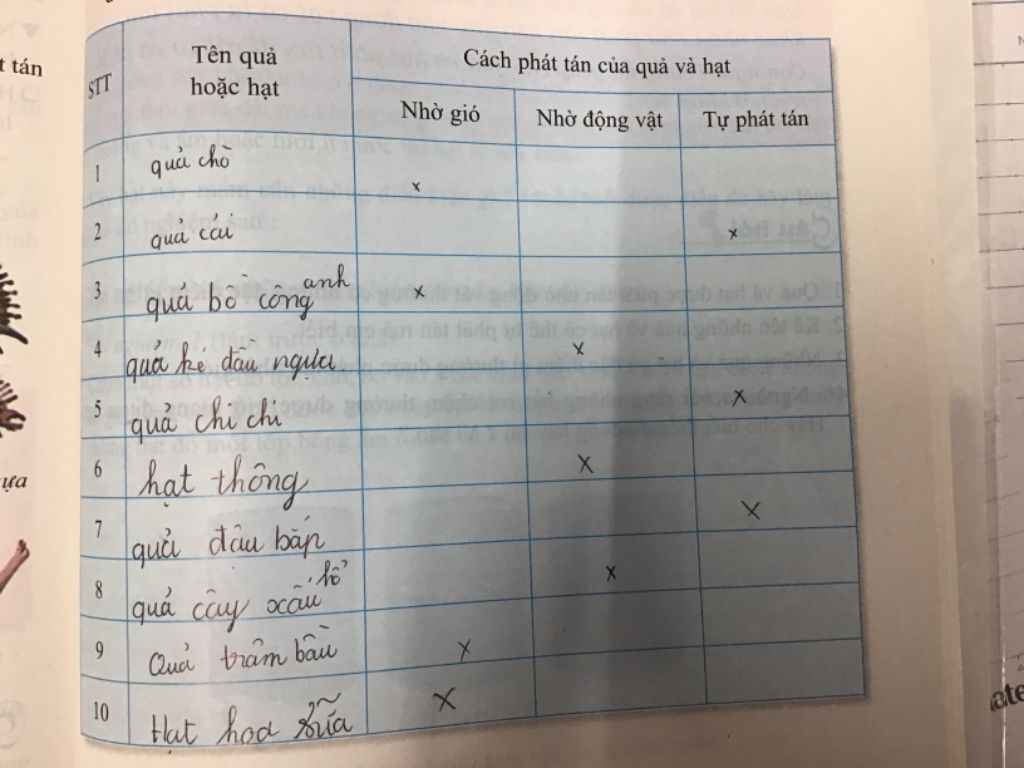 t tán
STT
Tên quả
hoặc hạt
Cách phát tán của quả và hạt
Nhờ gió
Nhờ động vật
Tự phát tán
1 quả chò x
2 quả cải x
3 quả bồ công anh x
4 quả ké đầu ngựa x
5 quả chi chi x
6 hạt thông x
7 quả đậu bắp x
8 quả cây xấu hổ x
9 Quả trâm bầu x
10 Hạt hoa sữa x
ựa